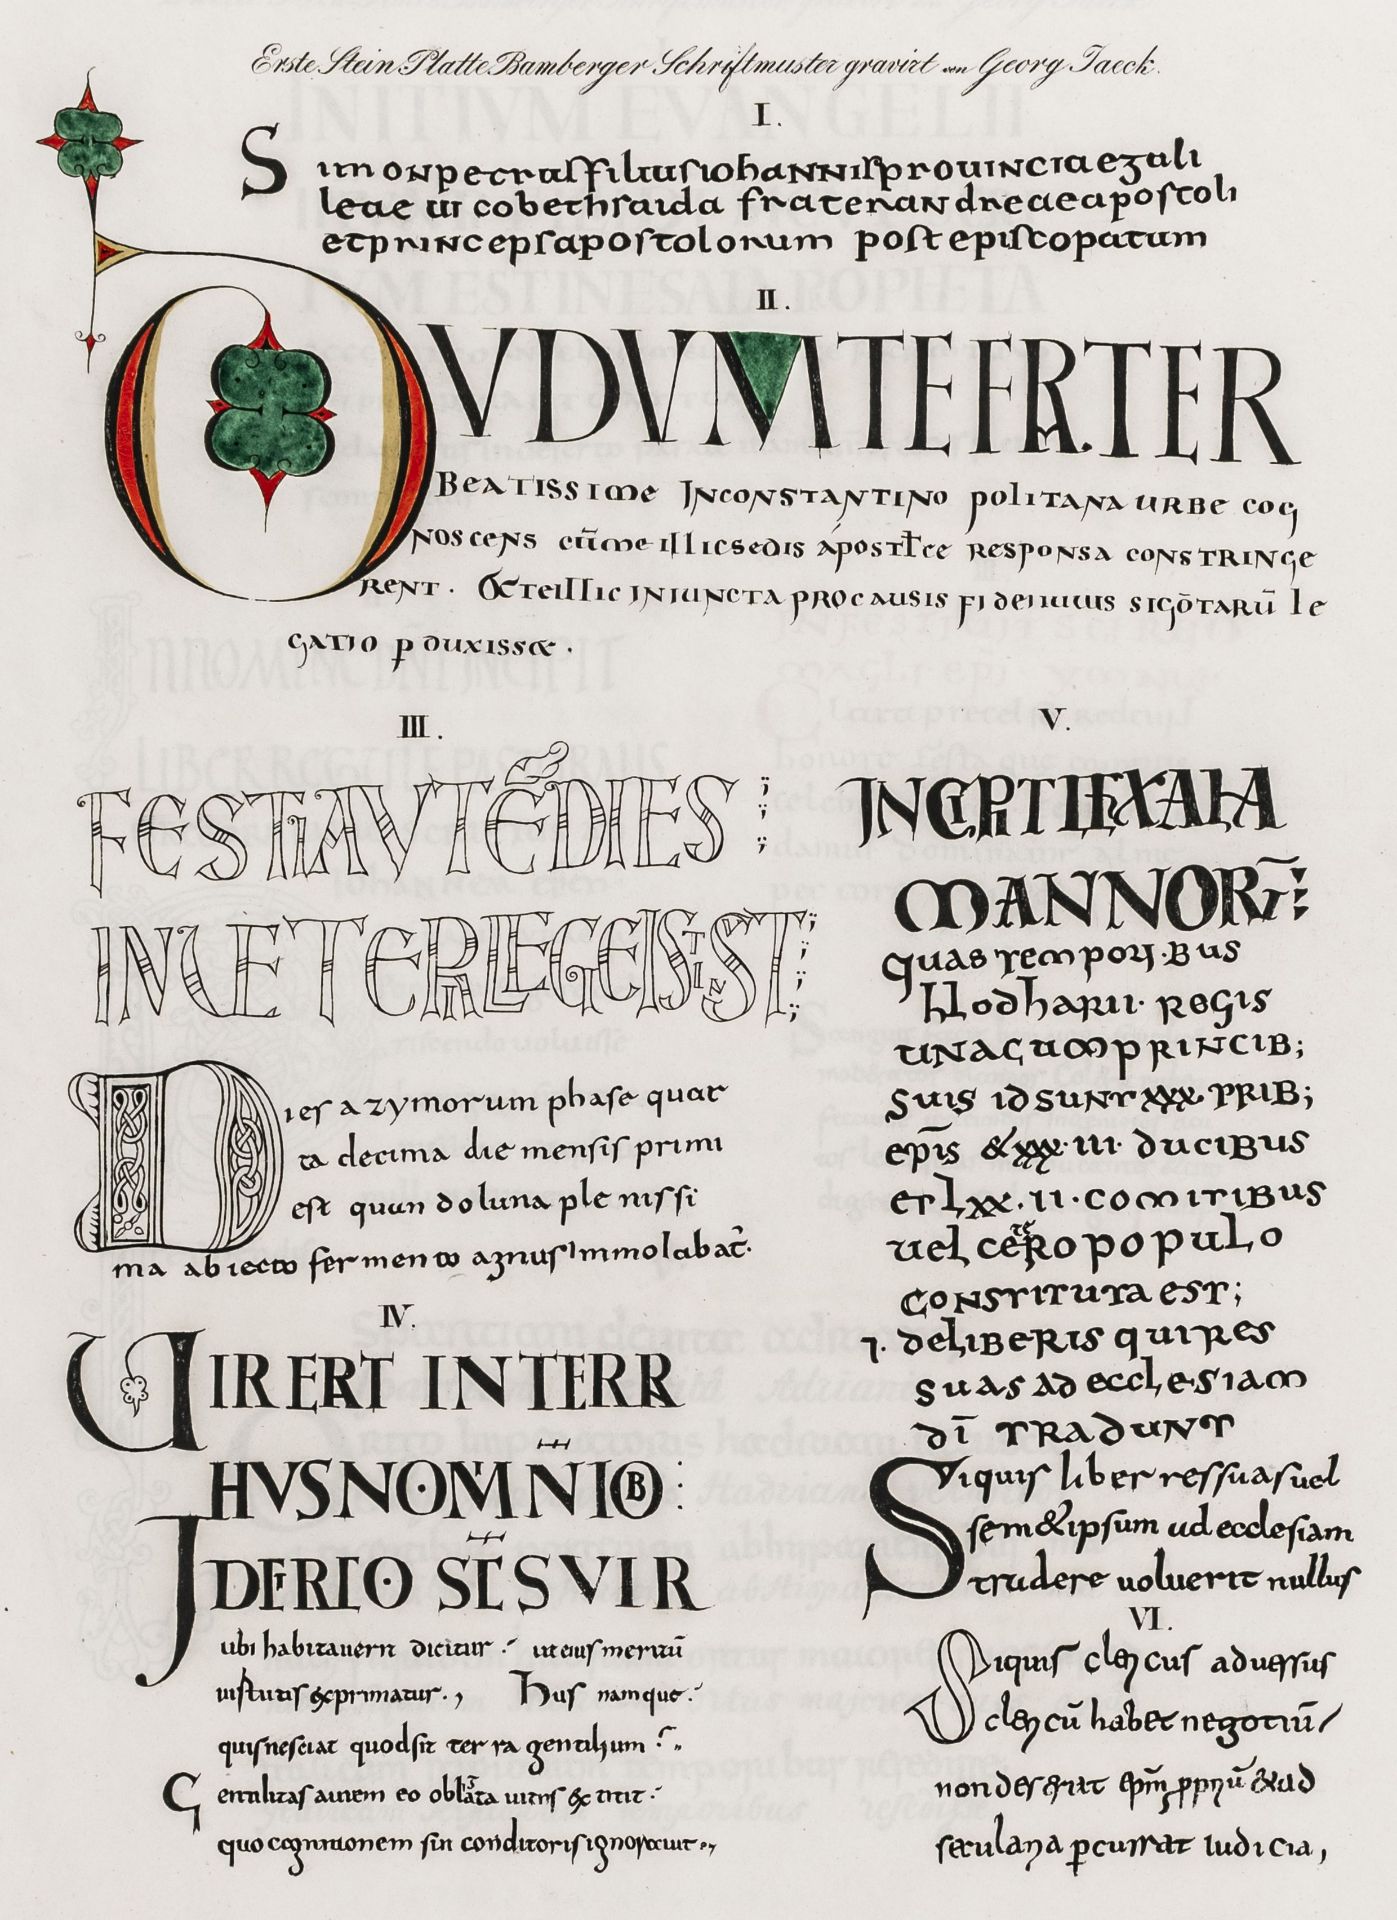 Erste Stein Platte Bamberger Schriftmuster gravirt von Georg Jaeck.
I.
Simon petrus filius iohannis prouincia egali
leae uico bethsaida frater andreae apostoli
et princeps apostolorum post episcopatum
II.
OVDVM TE FRATER
BEATISSIME IN CONSTANTINO POLITANA URBE COG
NOSCENS cūme illic sedis apostłce RESPONSA CONSTRINGE
RENT. &te illic INIUNCTA PRO causis fidei SIGŌTARŪ le
GATIO p duxisse.
III.
FESTI AVTĒ DIES
IN UETERI LEGE ISTI SUNT
Dies azymorum phase quar
ta decima die mensis primi
est quando luna plenissi
ma abiecto fermento agnus immolabat̄.
IV.
UIR ERAT IN TERRA
HVS NOMINE IOB
IDERICO SCS VIR
ubi habitauerit dicitur ut eius meritū
uirtutis exprimatur., Hus namque.
quis nesciat quod sit terra gentilium
Gentilitas autem eo obligata uitiis extitit
quo cognitionem sui conditoris ignorauit
V.
INCIPIT LEX ALA
MANNORŪ;
quas temporibus
hlodharii. regis
una cum princib;
suis id sunt xxx. prib;
epīs & xxx.iii. ducibus
et lxx.ii. comitibus
uel cetero populo
constituta est;
I. de liberis qui res
suas ad ecclesiam
dī tradunt
Siquis liber res suas uel
sem&ipsum ad ecclesiam
tradere uoluerit nullus
VI.
Siquis clericus aduersus
clericū habet negotiū
non deserat epīm ppriū & ad
secularia pcurrat iudicia,